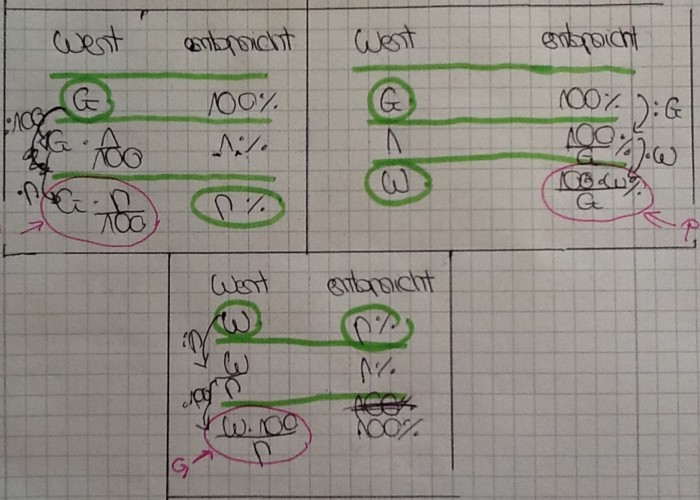 Wert entspricht
G 100%
:100
G · 1/100 1%
·p
G · p/100 p%
Wert entspricht
G 100%
:G
1 100/G %
·W
W 100·W/G %
P
Wert entspricht
W p%
:p
W/p 1%
·100
100%
W·100/p 100%
G